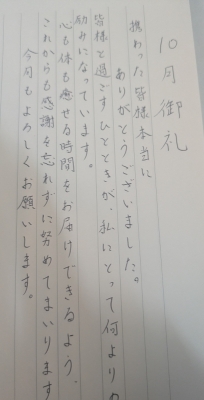 10月御礼
携わった皆様本当に
ありがとうございました。
皆様と過ごすひとときが、私にとって何よりの
励みになっています。
心も体も癒せる時間をお届けできるよう、
これからも感謝を忘れずに努めてまいります
今月もよろしくお願いします。